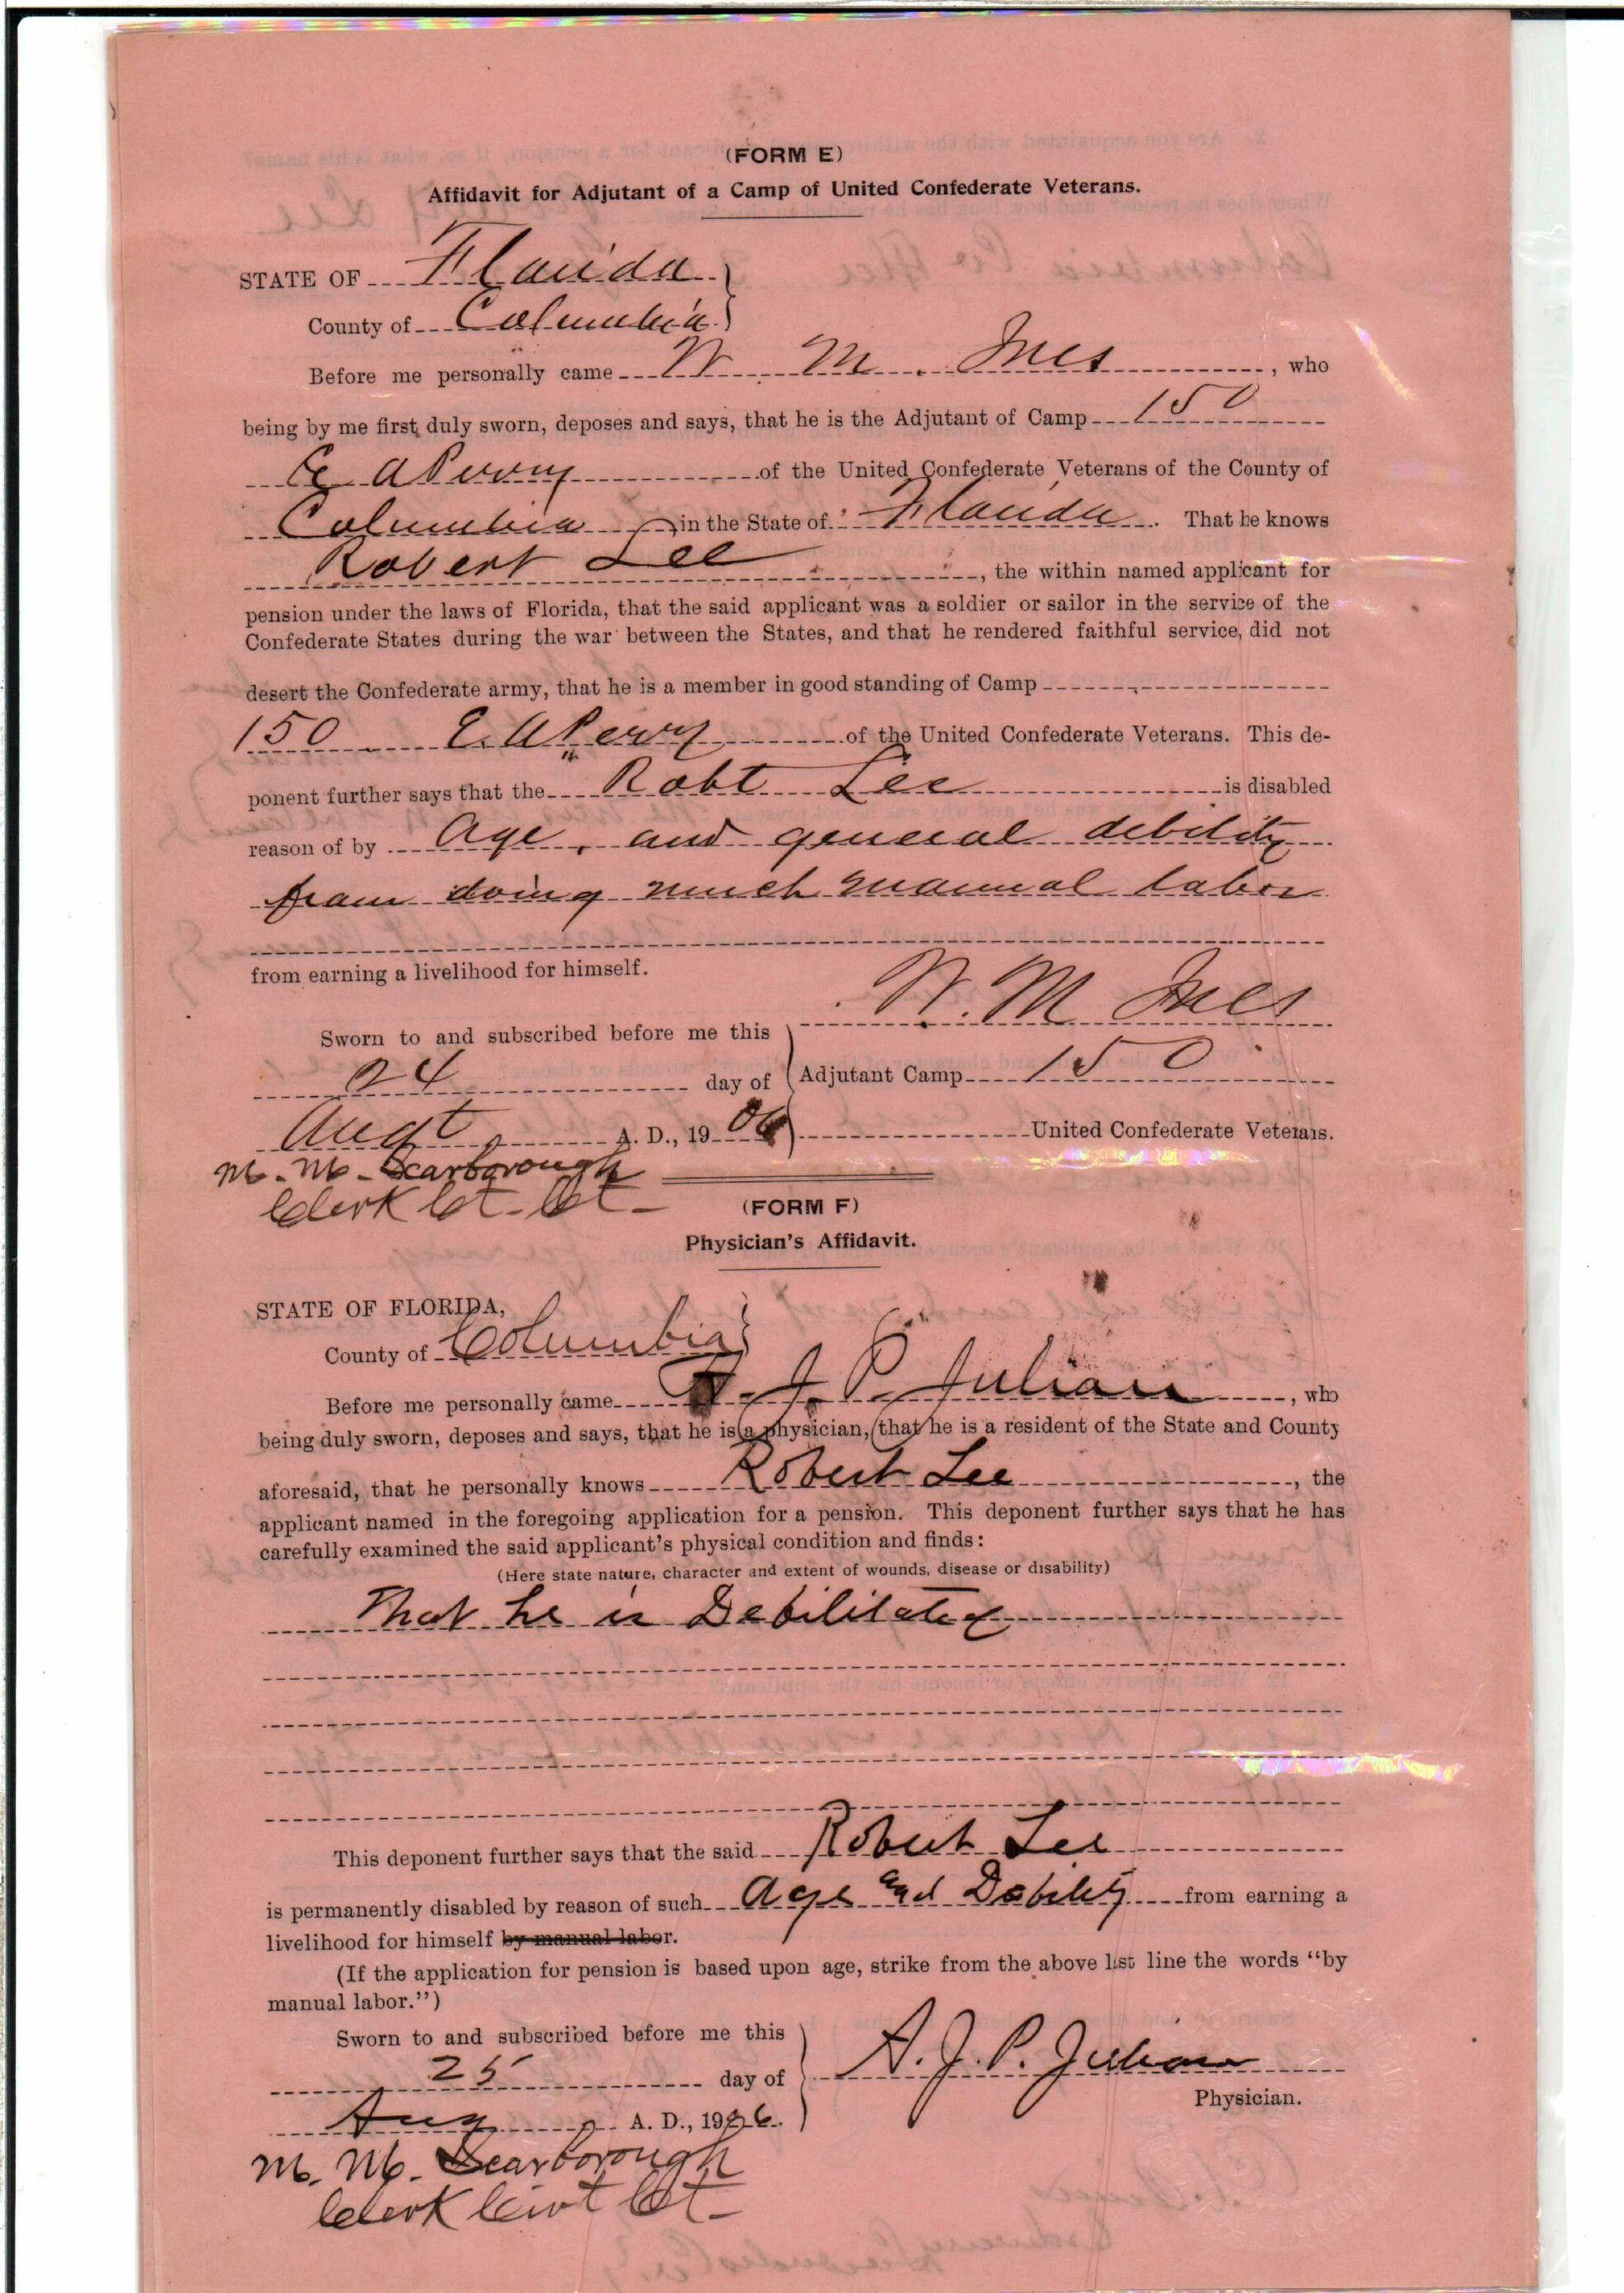 (FORM E)
Affidavit for Adjutant of a Camp of United Confederate Veterans.
STATE OF Florida
County of Columbia
Before me personally came W. M. Ives, who
being by me first duly sworn, deposes and says, that he is the Adjutant of Camp 150
E A Perry of the United Confederate Veterans of the County of
Columbia, in the State of Florida. That he knows
Robert Lee, the within named applicant for
pension under the laws of Florida, that the said applicant was a soldier or sailor in the service of the
Confederate States during the war between the States, and that he rendered faithful service, did not
desert the Confederate army, that he is a member in good standing of Camp
150 E. A Perry of the United Confederate Veterans. This de-
ponent further says that the Robt Lee is disabled
reason of by Age, and general debility
from doing much manual labor
from earning a livelihood for himself.
W. M Ives
Sworn to and subscribed before me this
24 day of Adjutant Camp 150
Augt, A. D., 1906 United Confederate Veterans.
M. M. Scarborough
Clerk Ct. Ct.
(FORM F)
Physician's Affidavit.
STATE OF FLORIDA,
County of Columbia
Before me personally came A. J. P. Julian, who
being duly sworn, deposes and says, that he is a physician, that he is a resident of the State and County
aforesaid, that he personally knows Robert Lee, the
applicant named in the foregoing application for a pension. This deponent further says that he has
carefully examined the said applicant's physical condition and finds:
(Here state nature, character and extent of wounds, disease or disability)
That he is Debilitated
This deponent further says that the said Robert Lee
is permanently disabled by reason of such Age and Debility from earning a
livelihood for himself by manual labor.
(If the application for pension is based upon age, strike from the above last line the words "by
manual labor.")
Sworn to and subscribed before me this
25 day of A. J. P. Julian
Physician.
Aug, A. D., 1906.
M. M. Scarborough
Clerk Circt Ct.